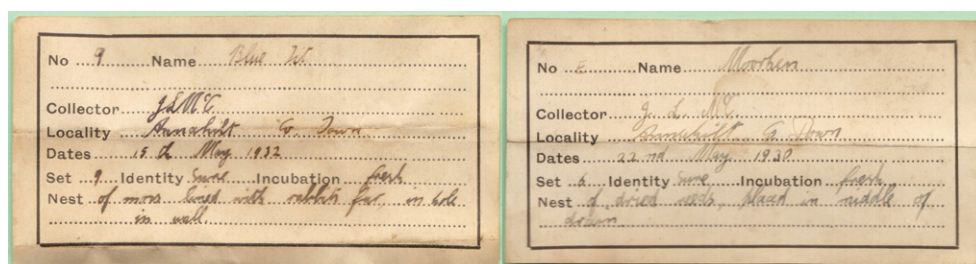 No 9 Name Blue tit
Collector J L McC
Locality Annahilt Co Down
Dates 15th May 1932
Set 9 Identity Sure Incubation fresh
Nest of moss lined with rabbits fur, in hole
in wall.
No Name Moorhen
Collector J. L. McC.
Locality Annahilt Co Down
Dates 22nd May 1930
Set 6 Identity Sure Incubation fresh
Nest of dried reeds, placed in middle of
down